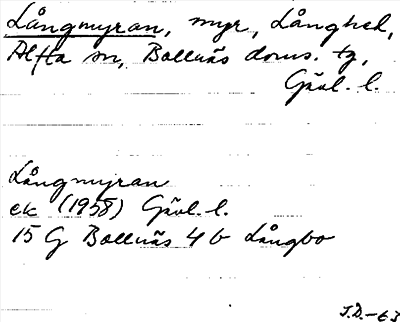 Långmyran, myr, Långhed,
Alfta sn, Bollnäs doms. tg,
Gävl. l.
Långmyran
ek (1958) Gävl. l.
15 G Bollnäs 4 b Långbo
J.D.-63